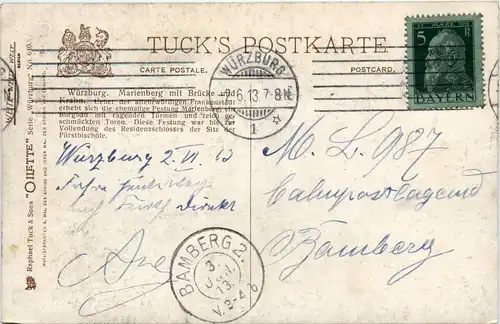 TUCK'S POSTKARTE.
CARTE POSTALE.
POSTCARD.
Würzburg. Marienberg mit Brücke und
Krahn. Ueber der altehrwürdigen Frankenstadt
erhebt sich die ehemalige Festung Marienberg, ein
Burgbau mit ragenden Türmen und reich ge-
schmückten Toren. Diese Festung war bis zur
Vollendung des Residenzschlosses der Sitz der
Fürstbischöfe.
WÜRZBURG
6.13 7-8 N
1
5
BAYERN
Würzburg 2. VI. 13
Direkt
M. L. 987
Bahnpostlagernd
Bamberg
BAMBERG 2.
3.
JUN.
13.
V. 3-4
Raphael Tuck & Sons "OILETTE" Serie „Würzburg"